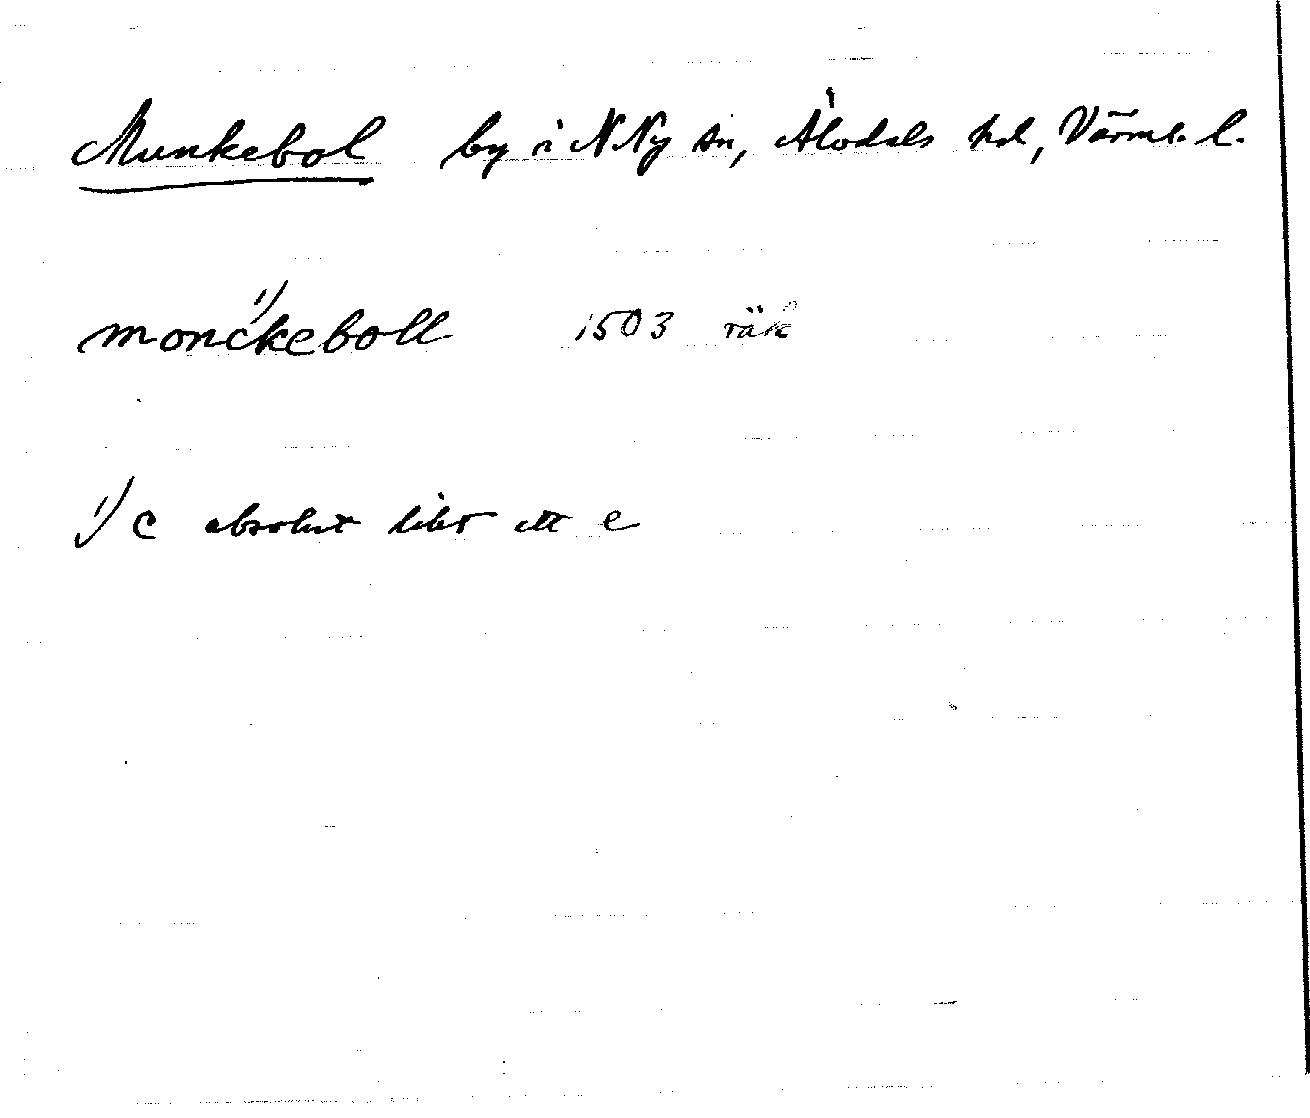 Munkebol by i N Ny sn, Älvdals hd, Värml. l.
monckeboll 1) 1503 räk
1) c absolut likt ett e